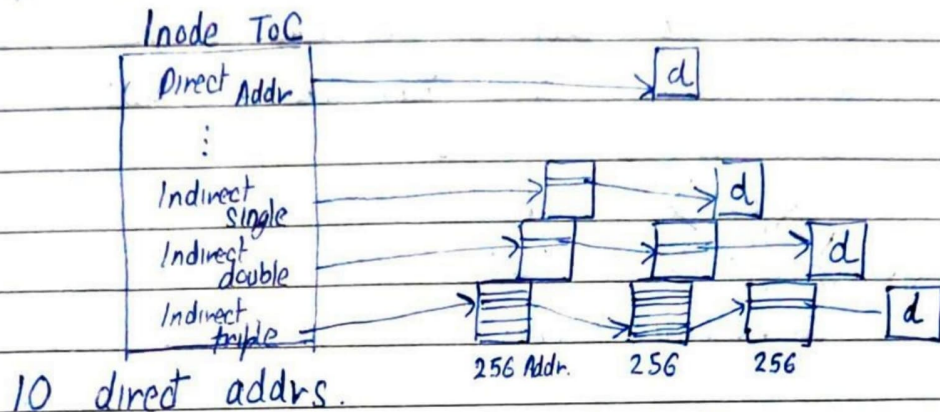 Inode ToC
Direct Addr
d
Indirect single
d
Indirect double
d
Indirect triple
d
256 Addr. 256 256
10 direct addrs.